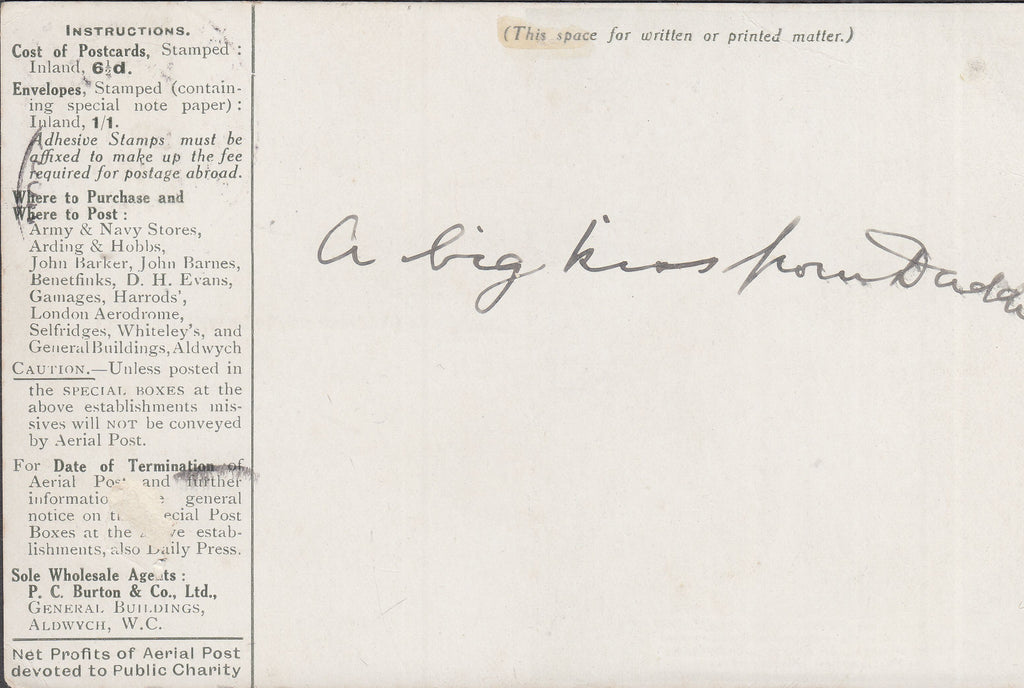 INSTRUCTIONS.
Cost of Postcards, Stamped :
Inland, 6½d.
Envelopes, Stamped (contain-
ing special note paper) :
Inland, 1/1.
Adhesive Stamps must be
affixed to make up the fee
required for postage abroad.
Where to Purchase and
Where to Post :
Army & Navy Stores,
Arding & Hobbs,
John Barker, John Barnes,
Benetfinks, D. H. Evans,
Gamages, Harrods',
London Aerodrome,
Selfridges, Whiteley's, and
General Buildings, Aldwych
CAUTION.—Unless posted in
the SPECIAL BOXES at the
above establishments mis-
sives will NOT be conveyed
by Aerial Post.
For Date of Termination of
Aerial Post and further
general
notice on Post
Boxes at the estab-
lishments, also Daily Press.
Sole Wholesale Agents :
P. C. Burton & Co., Ltd.,
GENERAL BUILDINGS,
ALDWYCH, W.C.
Net Profits of Aerial Post
devoted to Public Charity
(This space for written or printed matter.)
A big kiss from Dadd